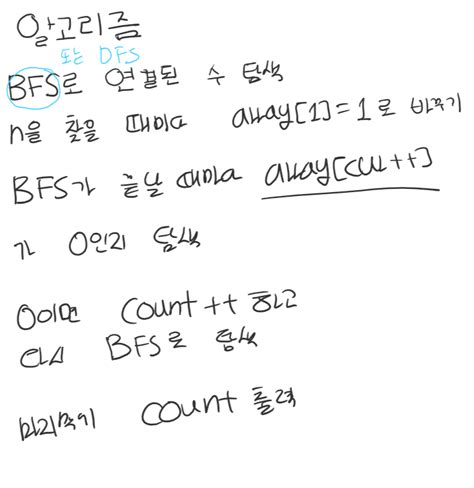 알고리즘
또는 DFS
BFS로 연결된 수 탐색
n을 찾을 때마다 array[1]=1로 바꾸기
BFS가 끝날 때마다 array[cur++]
가 0인지 탐색
0이면 count++하고
다시 BFS로 탐색
마지막에 count 출력